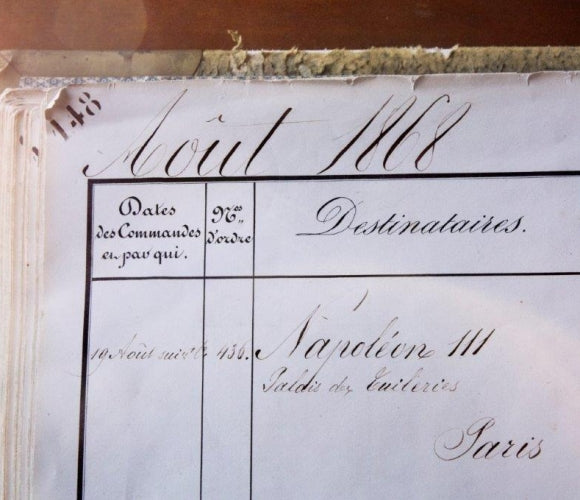 148
Août 1868
Dates
des Commandes
et par qui.
Nos
d'ordre
Destinataires.
19 Août 436. Napoléon III
Palais des Tuileries
Paris